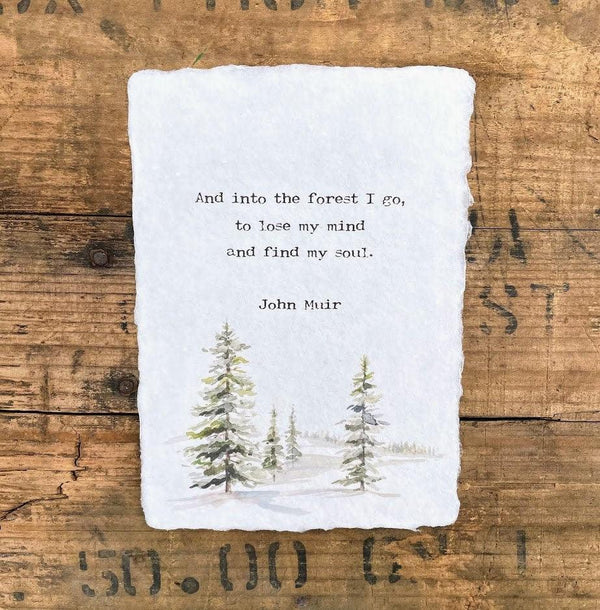 And into the forest I go,
to lose my mind
and find my soul.
John Muir
50.00